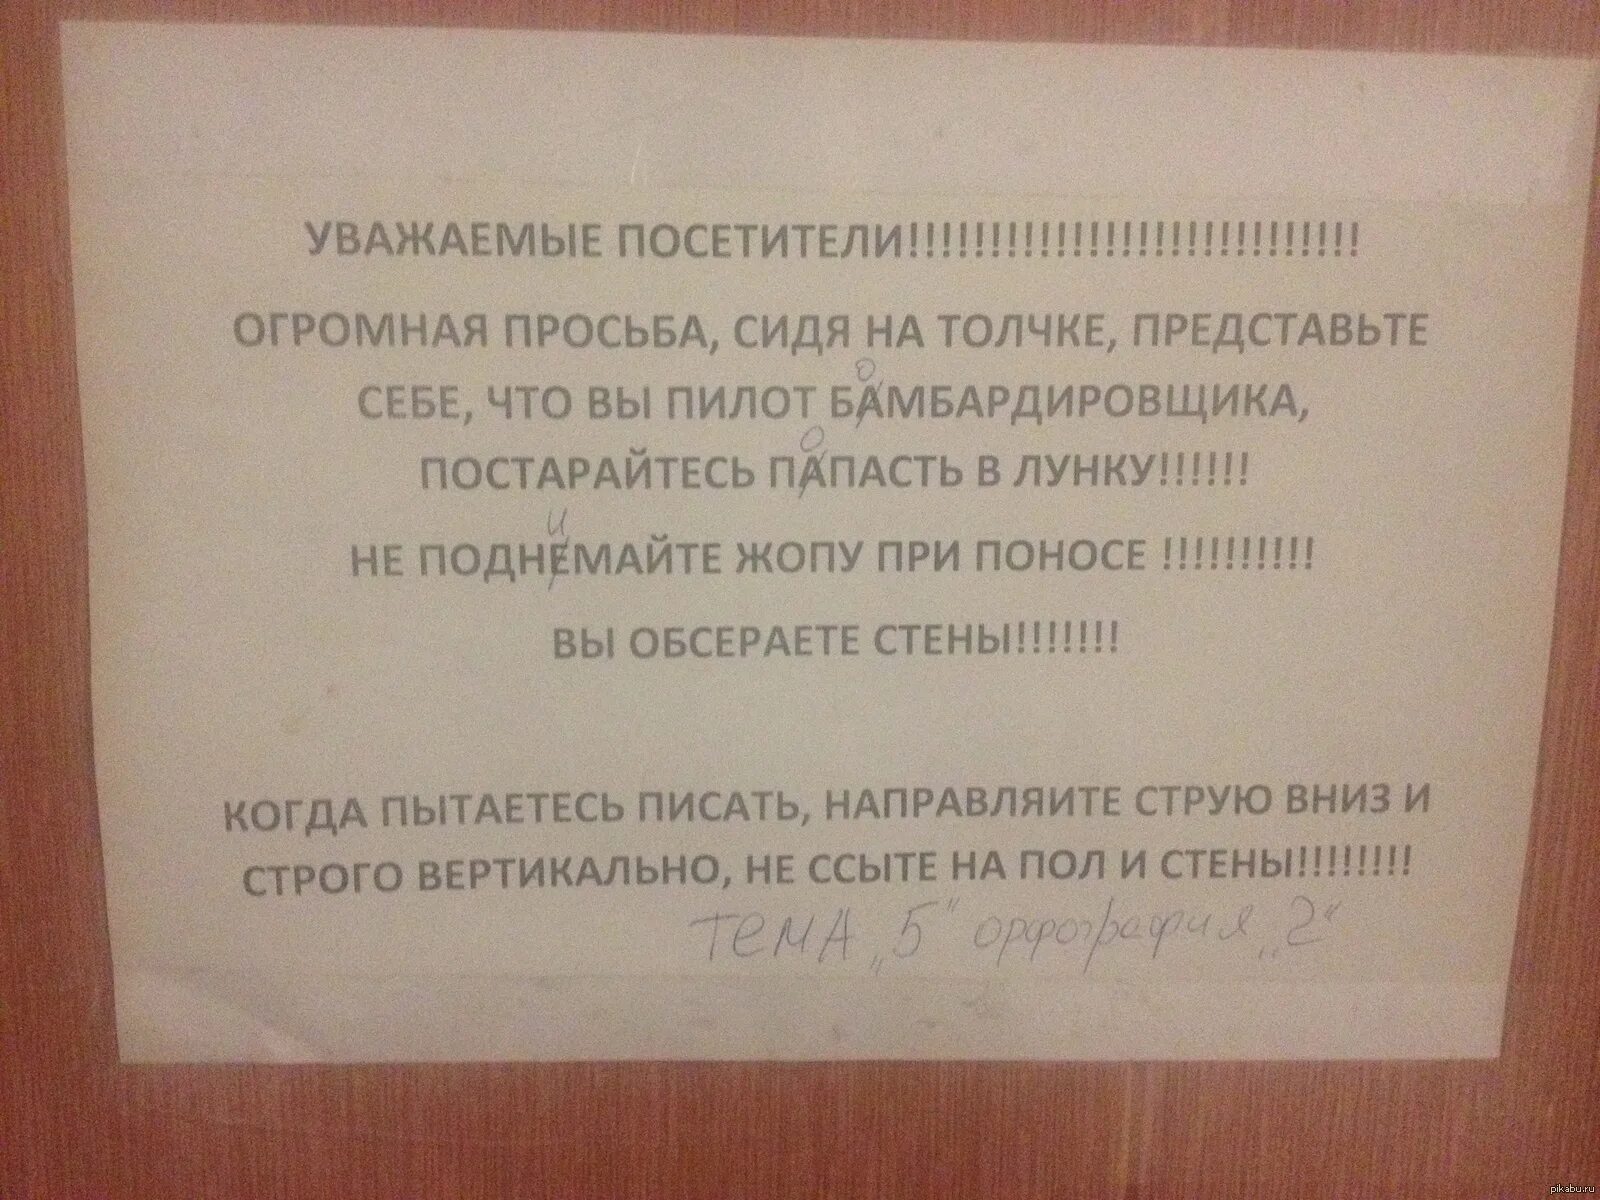 УВАЖАЕМЫЕ ПОСЕТИТЕЛИ!!!!!!!!!!!!!!!!!!!!!!!!!!!!
ОГРОМНАЯ ПРОСЬБА, СИДЯ НА ТОЛЧКЕ, ПРЕДСТАВЬТЕ
о
СЕБЕ, ЧТО ВЫ ПИЛОТ БАМБАРДИРОВЩИКА,
о
ПОСТАРАЙТЕСЬ ПАПАСТЬ В ЛУНКУ!!!!!!
и
НЕ ПОДНЕМАЙТЕ ЖОПУ ПРИ ПОНОСЕ !!!!!!!!!!
ВЫ ОБСЕРАЕТЕ СТЕНЫ!!!!!!!
КОГДА ПЫТАЕТЕСЬ ПИСАТЬ, НАПРАВЛЯИТЕ СТРУЮ ВНИЗ И
СТРОГО ВЕРТИКАЛЬНО, НЕ ССЫТЕ НА ПОЛ И СТЕНЫ!!!!!!!!
ТЕМА „5" орфография „2"
pikabu.ru